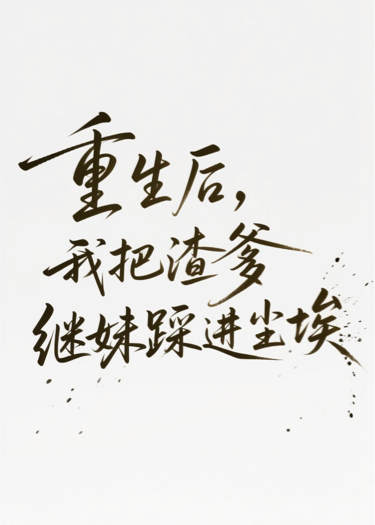 重生后，
我把渣爹
继妹踩进尘埃